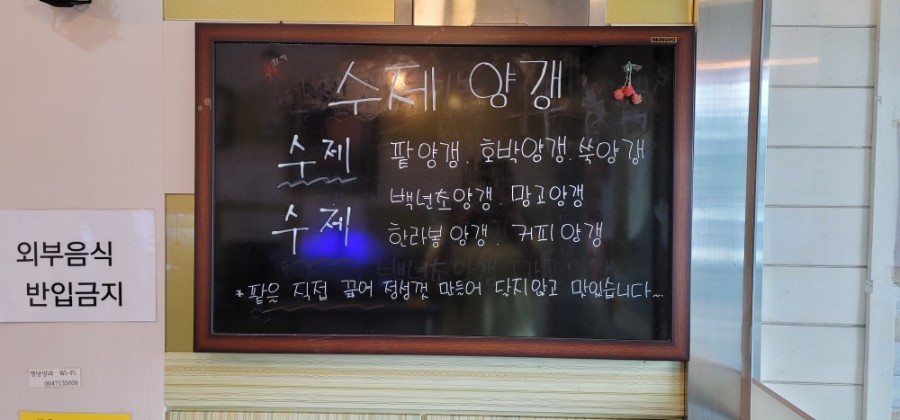 수제 양갱
수제 팥양갱. 호박양갱. 쑥양갱
백년초양갱. 망고양갱
수제 한라봉양갱. 커피양갱
*팥을 직접 끓여 정성껏 만들어 달지않고 맛있습니다~
외부음식
반입금지
Wi-Fi
0647135008